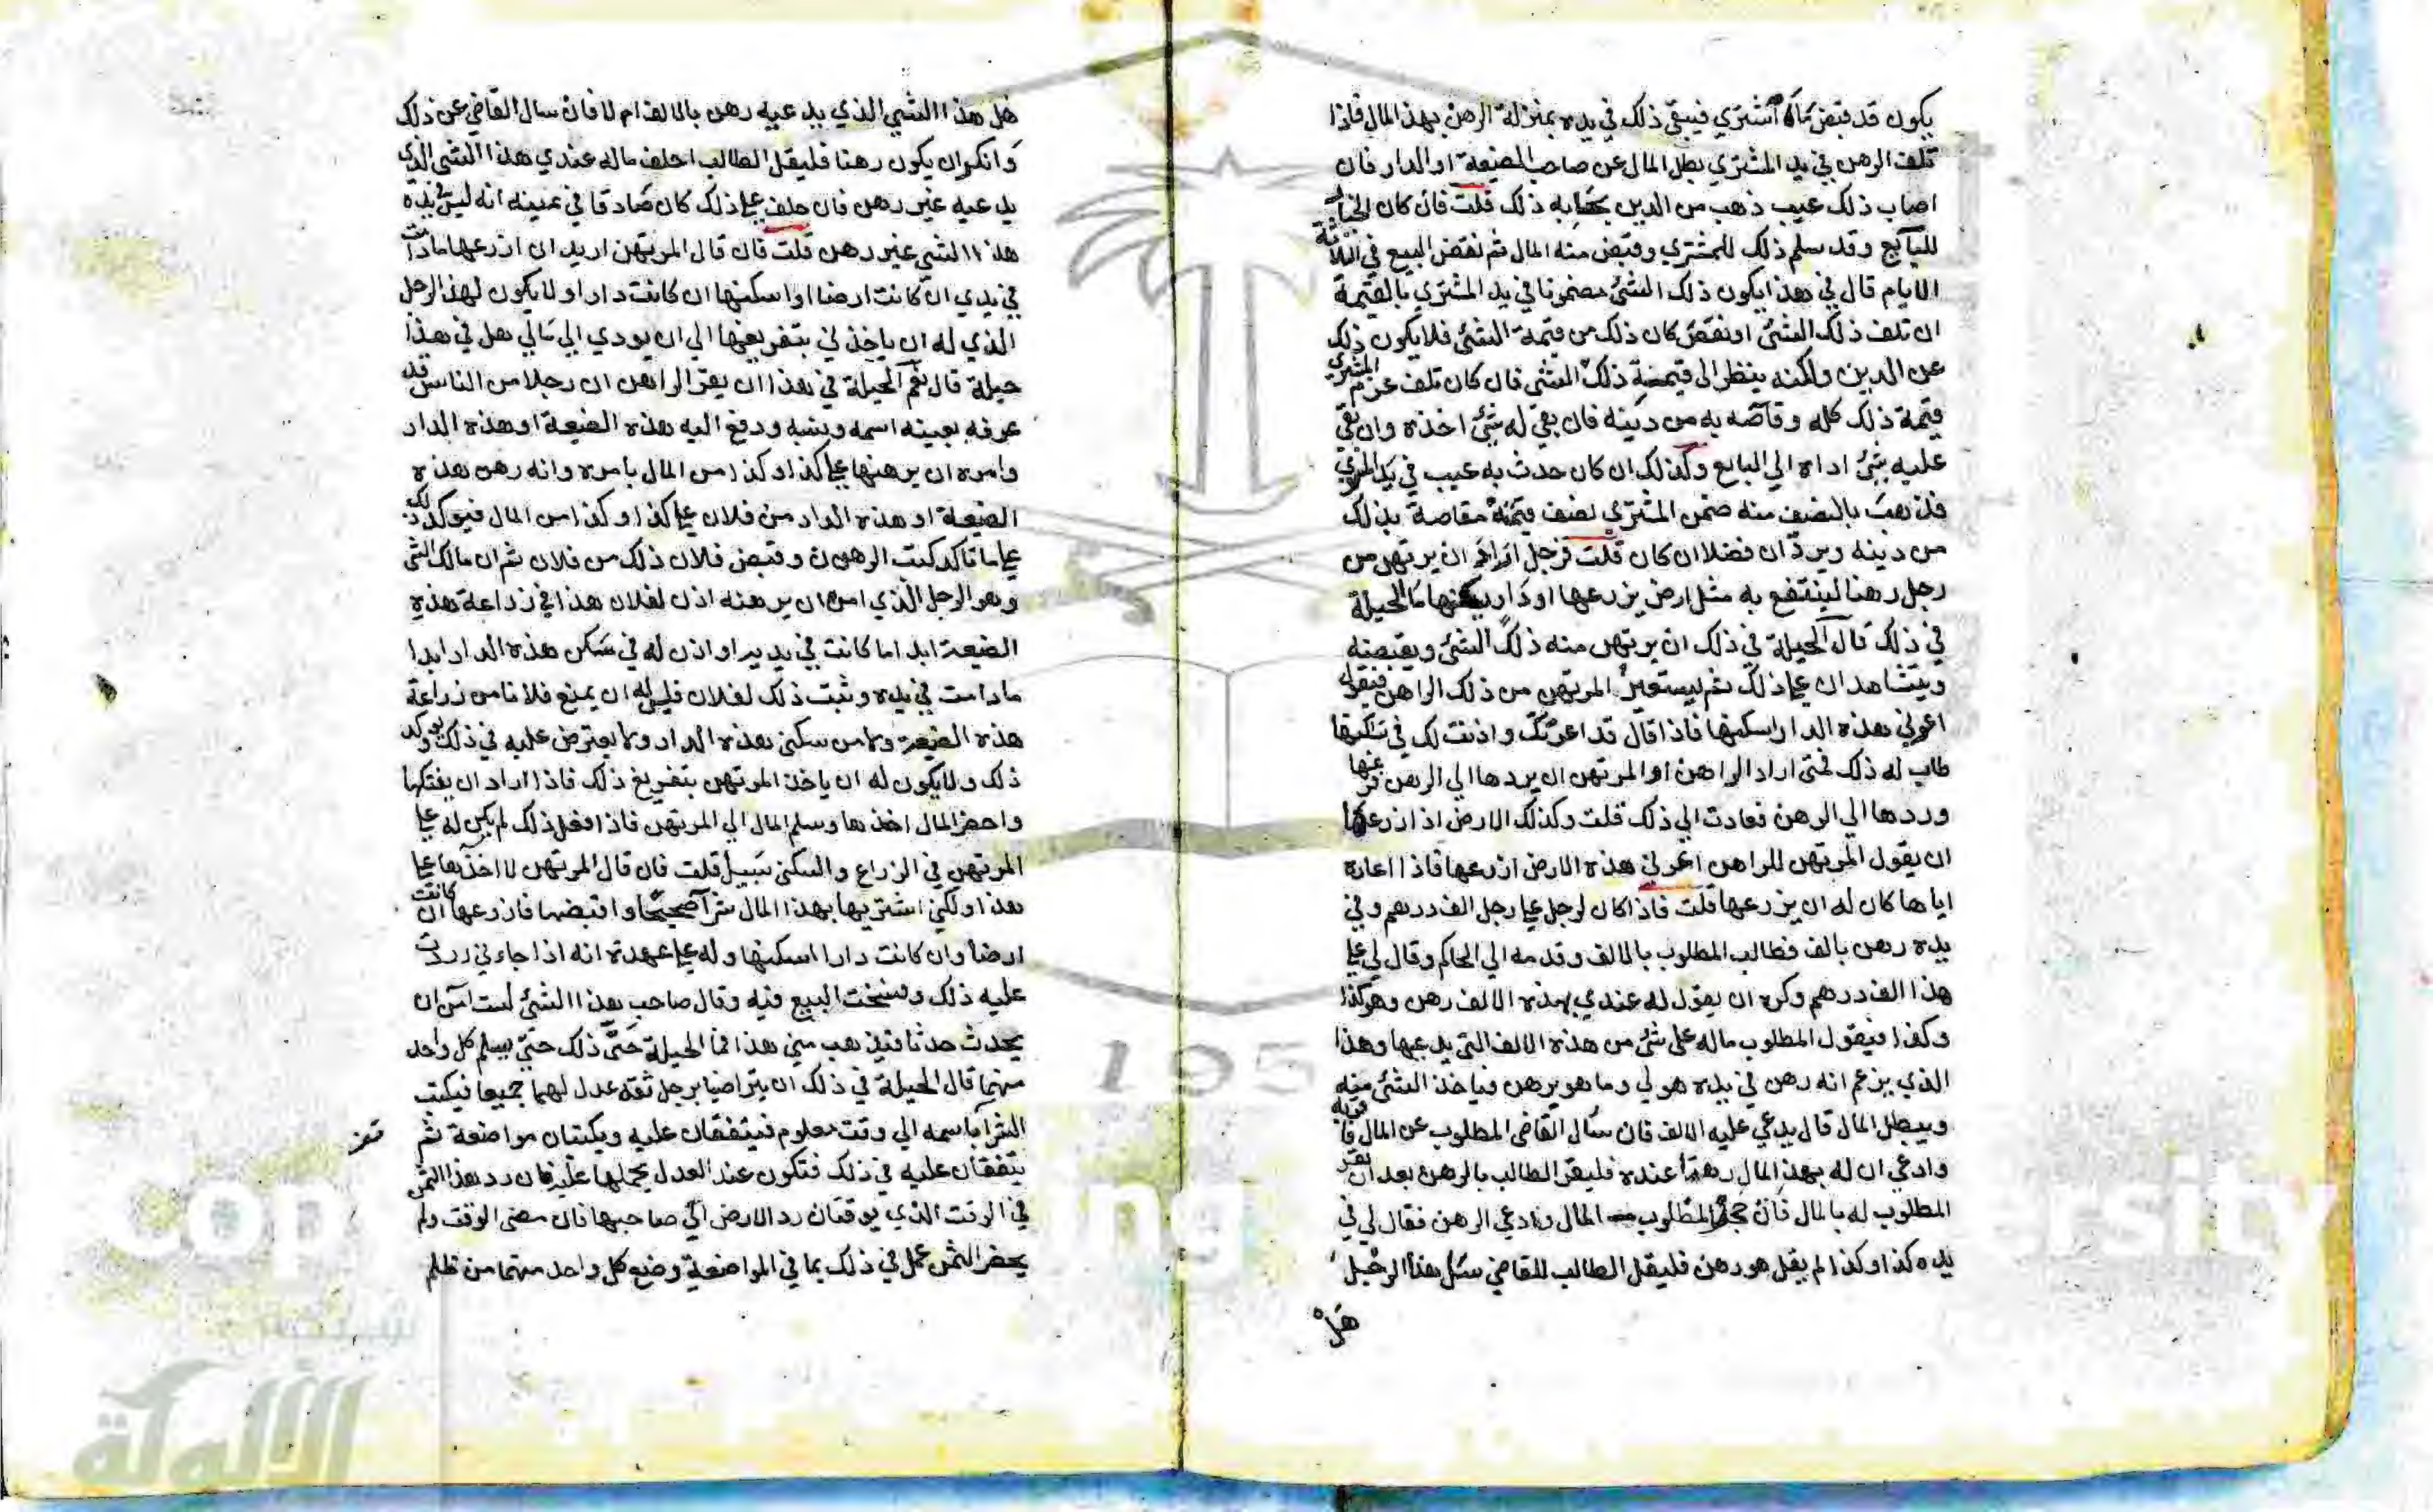 يكون قد قبض ما اشتري فيبقي ذلك في يده بمنزلة الرهن بهذا المال فاذا
تلف الرهن في يد المشتري بطل المال عن صاحب الضيعة او الدار فان
اصاب ذلك عيب ذهب من الدين بحسابه ذلك قلت فان كان الخيار
للبائع وقد سلم ذلك للمشتري وقبض منه المال ثم نقض البيع في الثلاثة
الايام قال في هذا يكون ذلك الشئ مضمونا في يد المشتري بالقيمة
ان تلف ذلك الشئ او نقص كان ذلك من قيمة الشئ فلا يكون ذلك
عن الدين ولكنه ينظر الى قيمة ذلك الشئ فان كان تلف غرم المشتري
قيمة ذلك كله وقاصه به من دينه فان بقي له شئ اخذه وان بقي
عليه شئ اداه الي البايع وكذلك ان كان حدث به عيب في يد المشتري
فذهب بالنصف منه ضمن المشتري نصف قيمته مقاصة بذلك
من دينه ويرد ان فضلا ان كان قلت فرجل اراد ان يرتهن من
رجل رهنا لينتفع به مثل ارض يزرعها او دار يسكنها ما الحيلة
في ذلك قال الحيلة في ذلك ان يرتهن منه ذلك الشئ ويقبضه
ويتشاهدان علي ذلك ثم يستعير المرتهن من ذلك الراهن فيقول
اعرني هذه الدار اسكنها فاذا قال قد اعرتك واذنت لك في سكنها
طاب له ذلك فمتى اراد الراهن او المرتهن ان يردها الي الرهن عنها
وردها الي الرهن فعادت الي ذلك قلت وكذلك الارض اذا زرعها
ان يقول المرتهن للراهن اعرني هذه الارض ازرعها فاذا اعاره
اياها كان له ان يزرعها قلت فاذا كان لرجل علي رجل الف درهم وفي
يده رهن بالف فطالب المطلوب بالالف وقدمه الي الحاكم وقال لي علي
هذا الف درهم وكره ان يقول له عندي بهذه الالف رهن وهو كذا
وكذا فيقول المطلوب ماله على شئ من هذه الالف التي يدعيها وهذا
الذي يزعم انه رهن في يده هو لي وما هو برهن فياخذ الشئ منه
ويبطل المال قال يدعي عليه الالف فان سأل القاضي المطلوب عن المال فاقر به
وادعي ان له بهذا المال رهنا عنده فليقر الطالب بالرهن بعد ان يقر
المطلوب له بالمال فان جحد المطلوب المال وادعي الرهن فقال لي في
يده كذا وكذا لم يقل هو رهن فليقل الطالب للقاضي سئل هذا الرجل
هل
هل هذا الشئ الذي يدعيه رهن بالالف ام لا فان سال القاضي عن ذلك
وانكر ان يكون رهنا فليقل الطالب احلف ماله عندي هذا الشئ الذي
يدعيه غير رهن فان حلف علي ذلك كان صادقا في يمينه انه ليس في يده
هذا الشئ غير رهن قلت فان قال المرتهن اريد ان ازرعها مادامت
في يدي ان كانت ارضا او اسكنها ان كانت دارا ولا يكون لهذا الرجل
الذي له ان ياخذني بتفريغها الي ان يودي الي مالي هل في هذا
حيلة قال نعم الحيلة في هذا ان يقر الراهن ان رجلا من الناس قد
عرفه بعينه اسمه ونسبه ودفع اليه هذه الضيعة او هذه الدار
وامره ان يرهنها علي كذا وكذا من المال بامره وانه رهن هذه
الضيعة او هذه الدار من فلان علي كذا وكذا من المال فيوكد ذلك
علي ما تاكد كتب الرهون وقبض فلان ذلك من فلان ثم ان مالك الشئ
وهو الرجل الذي امره ان يرهنه اذن لفلان هذا في زراعة هذه
الضيعة ابدا ما كانت في يديه او اذن له في سكن هذه الدار ابدا
مادامت في يده وثبت ذلك لفلان فليس له ان يمنع فلانا من زراعة
هذه الضيعة ولا من سكني هذه الدار ولا يعترض عليه في ذلك يوكد
ذلك ولا يكون له ان ياخذ المرتهن بتفريغ ذلك فاذا اراد ان يفتكها
واحضر المال اخذها وسلم المال الي المرتهن فاذا فعل ذلك لم يكن له علي
المرتهن في الزراع والسكني سبيل قلت فان قال المرتهن لا اخذها علي
هذا ولكني اشتريها بهذا المال شرآ صحيحا واقبضها فازرعها ان كانت
ارضا وان كانت دارا اسكنها وله علي عهدة انه اذا جاءني رددت
عليه ذلك وفسخت البيع فيه وقال صاحب هذا الشئ لست آمن ان
يحدث حدثا فيذهب مني هذا فما الحيلة حتى ذلك حتي يسلم كل واحد
منهما قال الحيلة في ذلك ان يتراضيا برجل ثقة عدل لهما جميعا فيكتب
الشرآ باسمه الي وقت معلوم فيتفقان عليه ويكتبان مواضعة ثم
يتفقان عليه في ذلك فتكون عند العدل يحملها عليه فان رد هذا الثمن
في الوقت الذي يوقتان رد الارض الي صاحبها فان مضى الوقت ولم
يحضر الثمن عمل في ذلك بما في المواضعة وضع كل واحد منهما من ظلم
شبكة
الألوكة